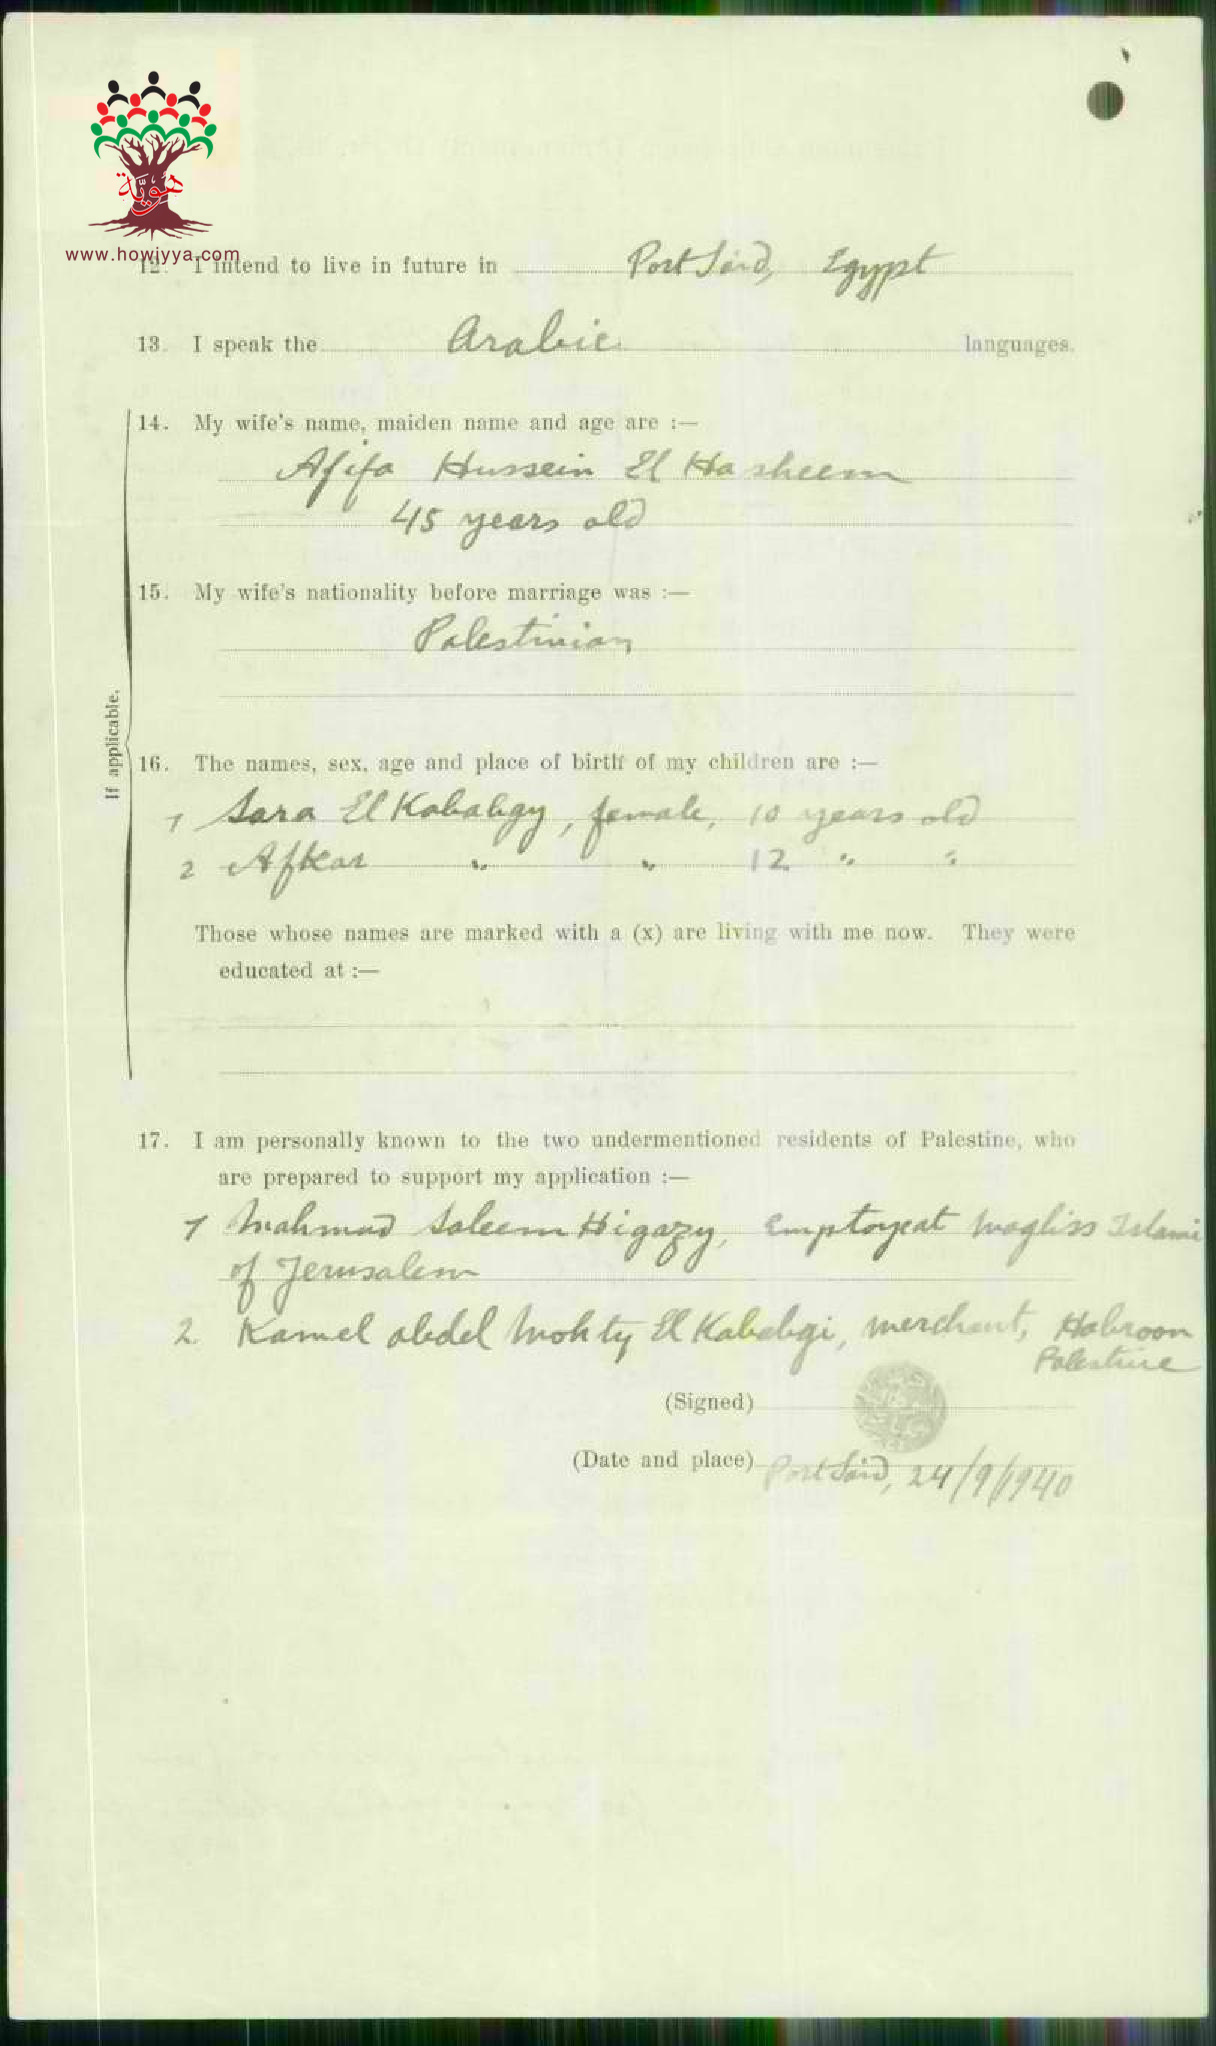 هويّة
www.howiyya.com
12. I intend to live in future in Port Said, Egypt
13. I speak the Arabic languages.
If applicable.
14. My wife's name, maiden name and age are :—
Afifa Hussein El Hasheem
45 years old
15. My wife's nationality before marriage was :—
Palestinian
16. The names, sex, age and place of birth of my children are :—
1 Sara El Kababgy, female, 10 years old
2 Afkar " " 12 " "
Those whose names are marked with a (x) are living with me now. They were
educated at :—
17. I am personally known to the two undermentioned residents of Palestine, who
are prepared to support my application :—
1 Mahmad Saleem Higazy, Employeat Magliss Islami
of Jerusalem
2 Kamel abdel Mohty El Kababgi, merchant, Habroon
Palestine
(Signed)
(Date and place) Port Said, 24/9/1940